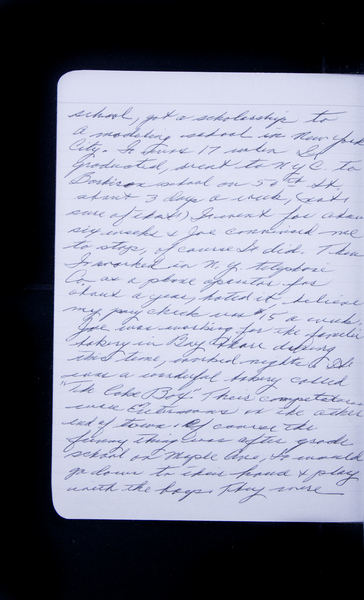 school, got a scholarship to
a modeling school in New York
City. I was 17 when I
graduated, went to N.Y.C. to
school on 50th St,
about 3 days a week, (not
sure of that) I went for about
six weeks & Joe convinced me
to stop, of course I did. Then
I worked in N.Y. telephone
Co. as a phone operator for
about a year, hated it,
my pay check was $15 a week.
Joe was working for the
bakery in Bay Shore during
this time, worked nights. It
was a wonderful bakery called
"The Cake Box". Their competitors
were on the other
end of town. Of course the
funny thing was after grade
school on Maple Ave, I would
go down to their house & play
with the boys. They were